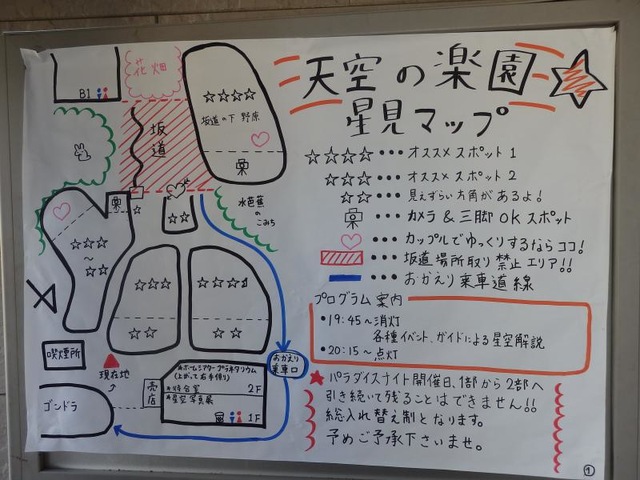 天空の楽園
星見マップ
☆☆☆☆•••オススメスポット1
☆☆☆•••オススメスポット2
☆☆•••見えずらい方角があるよ!
•••カメラ&三脚OKスポット
♡•••カップルでゆっくりするならココ!
•••坂道場所取り禁止エリア!!
•••おかえり乗車道線
プログラム案内
•19:45~消灯
各種イベント、ガイドによる星空解説
•20:15~点灯
★パラダイスナイト開催日、1部から2部へ
引き続いて残ることはできません!!
総入れ替え制となります。
予めご予承下さいませ。
B1
花畑
坂道
☆☆☆☆
坂道の下 野原
水芭蕉
の
こみち
☆
☆☆
☆☆☆
~
☆☆
☆☆☆
☆☆
☆☆☆☆
☆☆
喫煙所
現在地
ゴンドラ
売店
★ホームシアタープラネタリウム
★待合室
2F
★星空写真展
1F
おかえり
乗車口
①